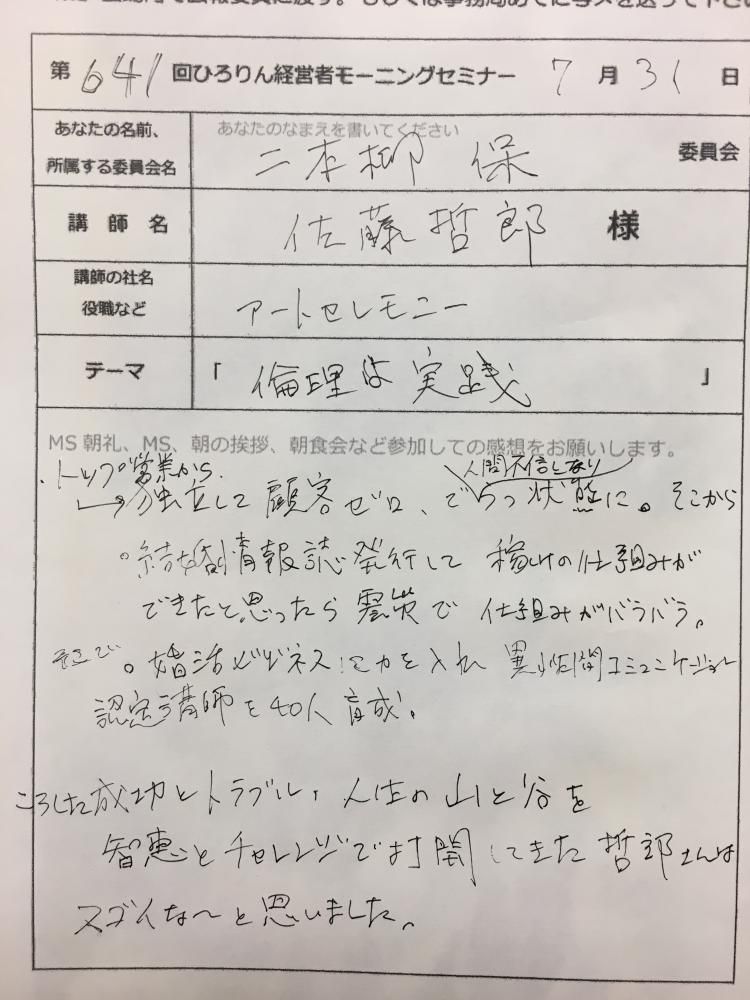 第641回ひろりん経営者モーニングセミナー 7月31日
あなたの名前、
所属する委員会名
あなたのなまえを書いてください
二本柳 保
委員会
講師名
佐藤哲郎 様
講師の社名
役職など
アートセレモニー
テーマ
「倫理は実践」
MS朝礼、MS、朝の挨拶、朝食会など参加しての感想をお願いします。
・トップ営業から
人間不信になり
→独立して顧客ゼロ、でうつ状態に。そこから
。結婚情報誌発行して 稼ぎの仕組みが
できたと思ったら震災で 仕組みがバラバラ。
そこで
。婚活ビジネスに力を入れ 異性間コミュニケーション
認定講師を40人育成。
こうした成功とトラブル、人生の山と谷を
智恵とチャレンジで打開してきた哲郎さんは
スゴイな〜と思いました。